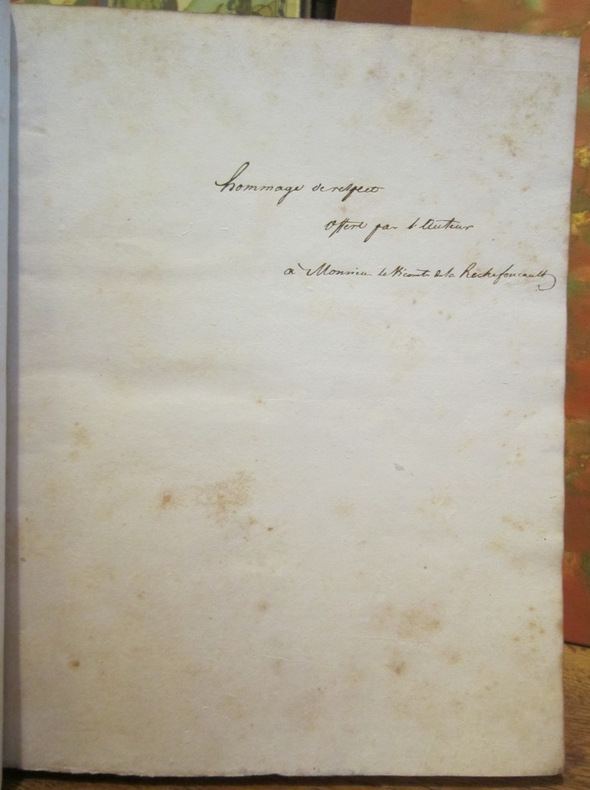 hommage de respect
offert par l'Auteur
à Monsieur le Vicomte de la Rochefoucault